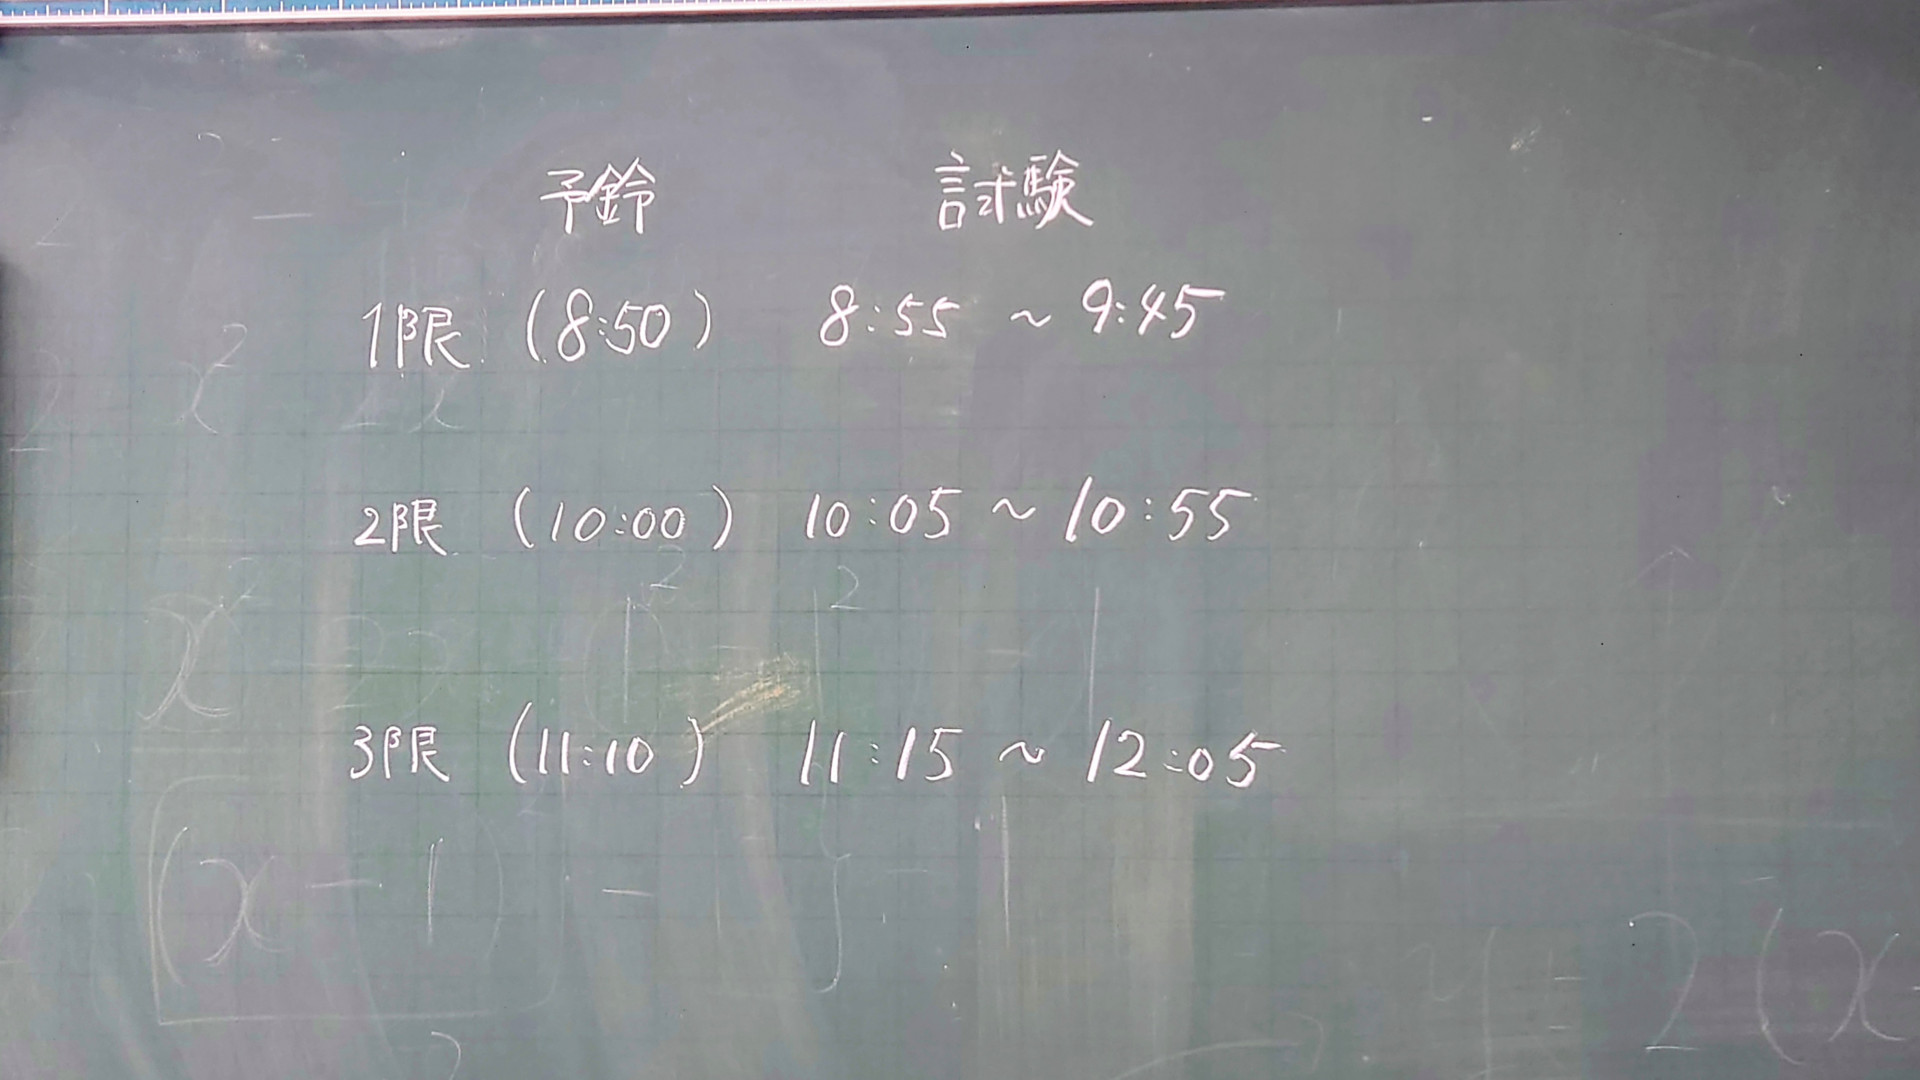 予鈴 試験
1限 (8:50) 8:55 ~ 9:45
2限 (10:00) 10:05 ~ 10:55
3限 (11:10) 11:15 ~ 12:05